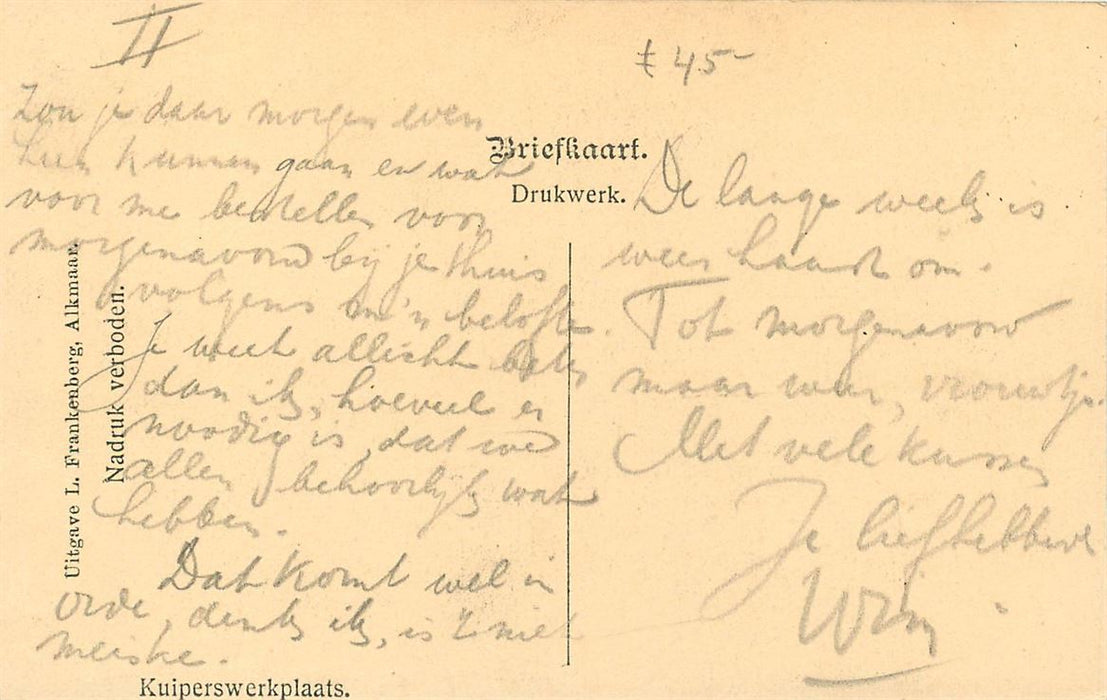 II
£ 45-
Zou je daar morgen even
heen kunnen gaan en wat
voor me bestellen voor
morgenavond bij je thuis
volgens m'n belofte.
Je weet allicht beter
dan ik, hoeveel er
noodig is, dat we
allen behoorlijk wat
hebben.
Dat komt wel in
orde, denk ik, is 't niet
meiske.
Briefkaart.
Drukwerk.
De lange week is
weer haast om.
Tot morgenavond
maar weer, vrouwtje.
Met vele kussen
Je liefhebbende
Wim
Uitgave L. Frankenberg, Alkmaar.
Nadruk verboden.
Kuiperswerkplaats.